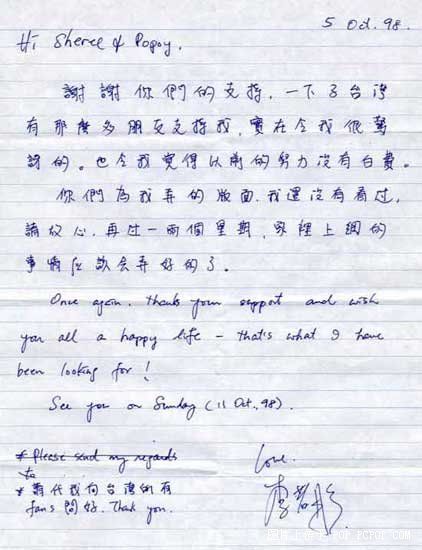 5 Oct. 98.
Hi Sheree & Popoy,
謝謝你們的支持，一下了台湾
有那麼多朋友支持我，實在令我很驚
訝的。也令我覺得以前的努力沒有白費。
你們為我弄的版面，我還沒有看过，
請放心，再过一兩個星期，家裡上網的
事情应該会弄好的了。
Once again, thanks your support and wish
you all a happy life – that's what I have
been looking for!
See you on Sunday (11 Oct., 98).
* Please send my regards
to
* 請代我向台灣的所有
fans 問好. Thank you.
Love.
李若彤
PCPOP.COM